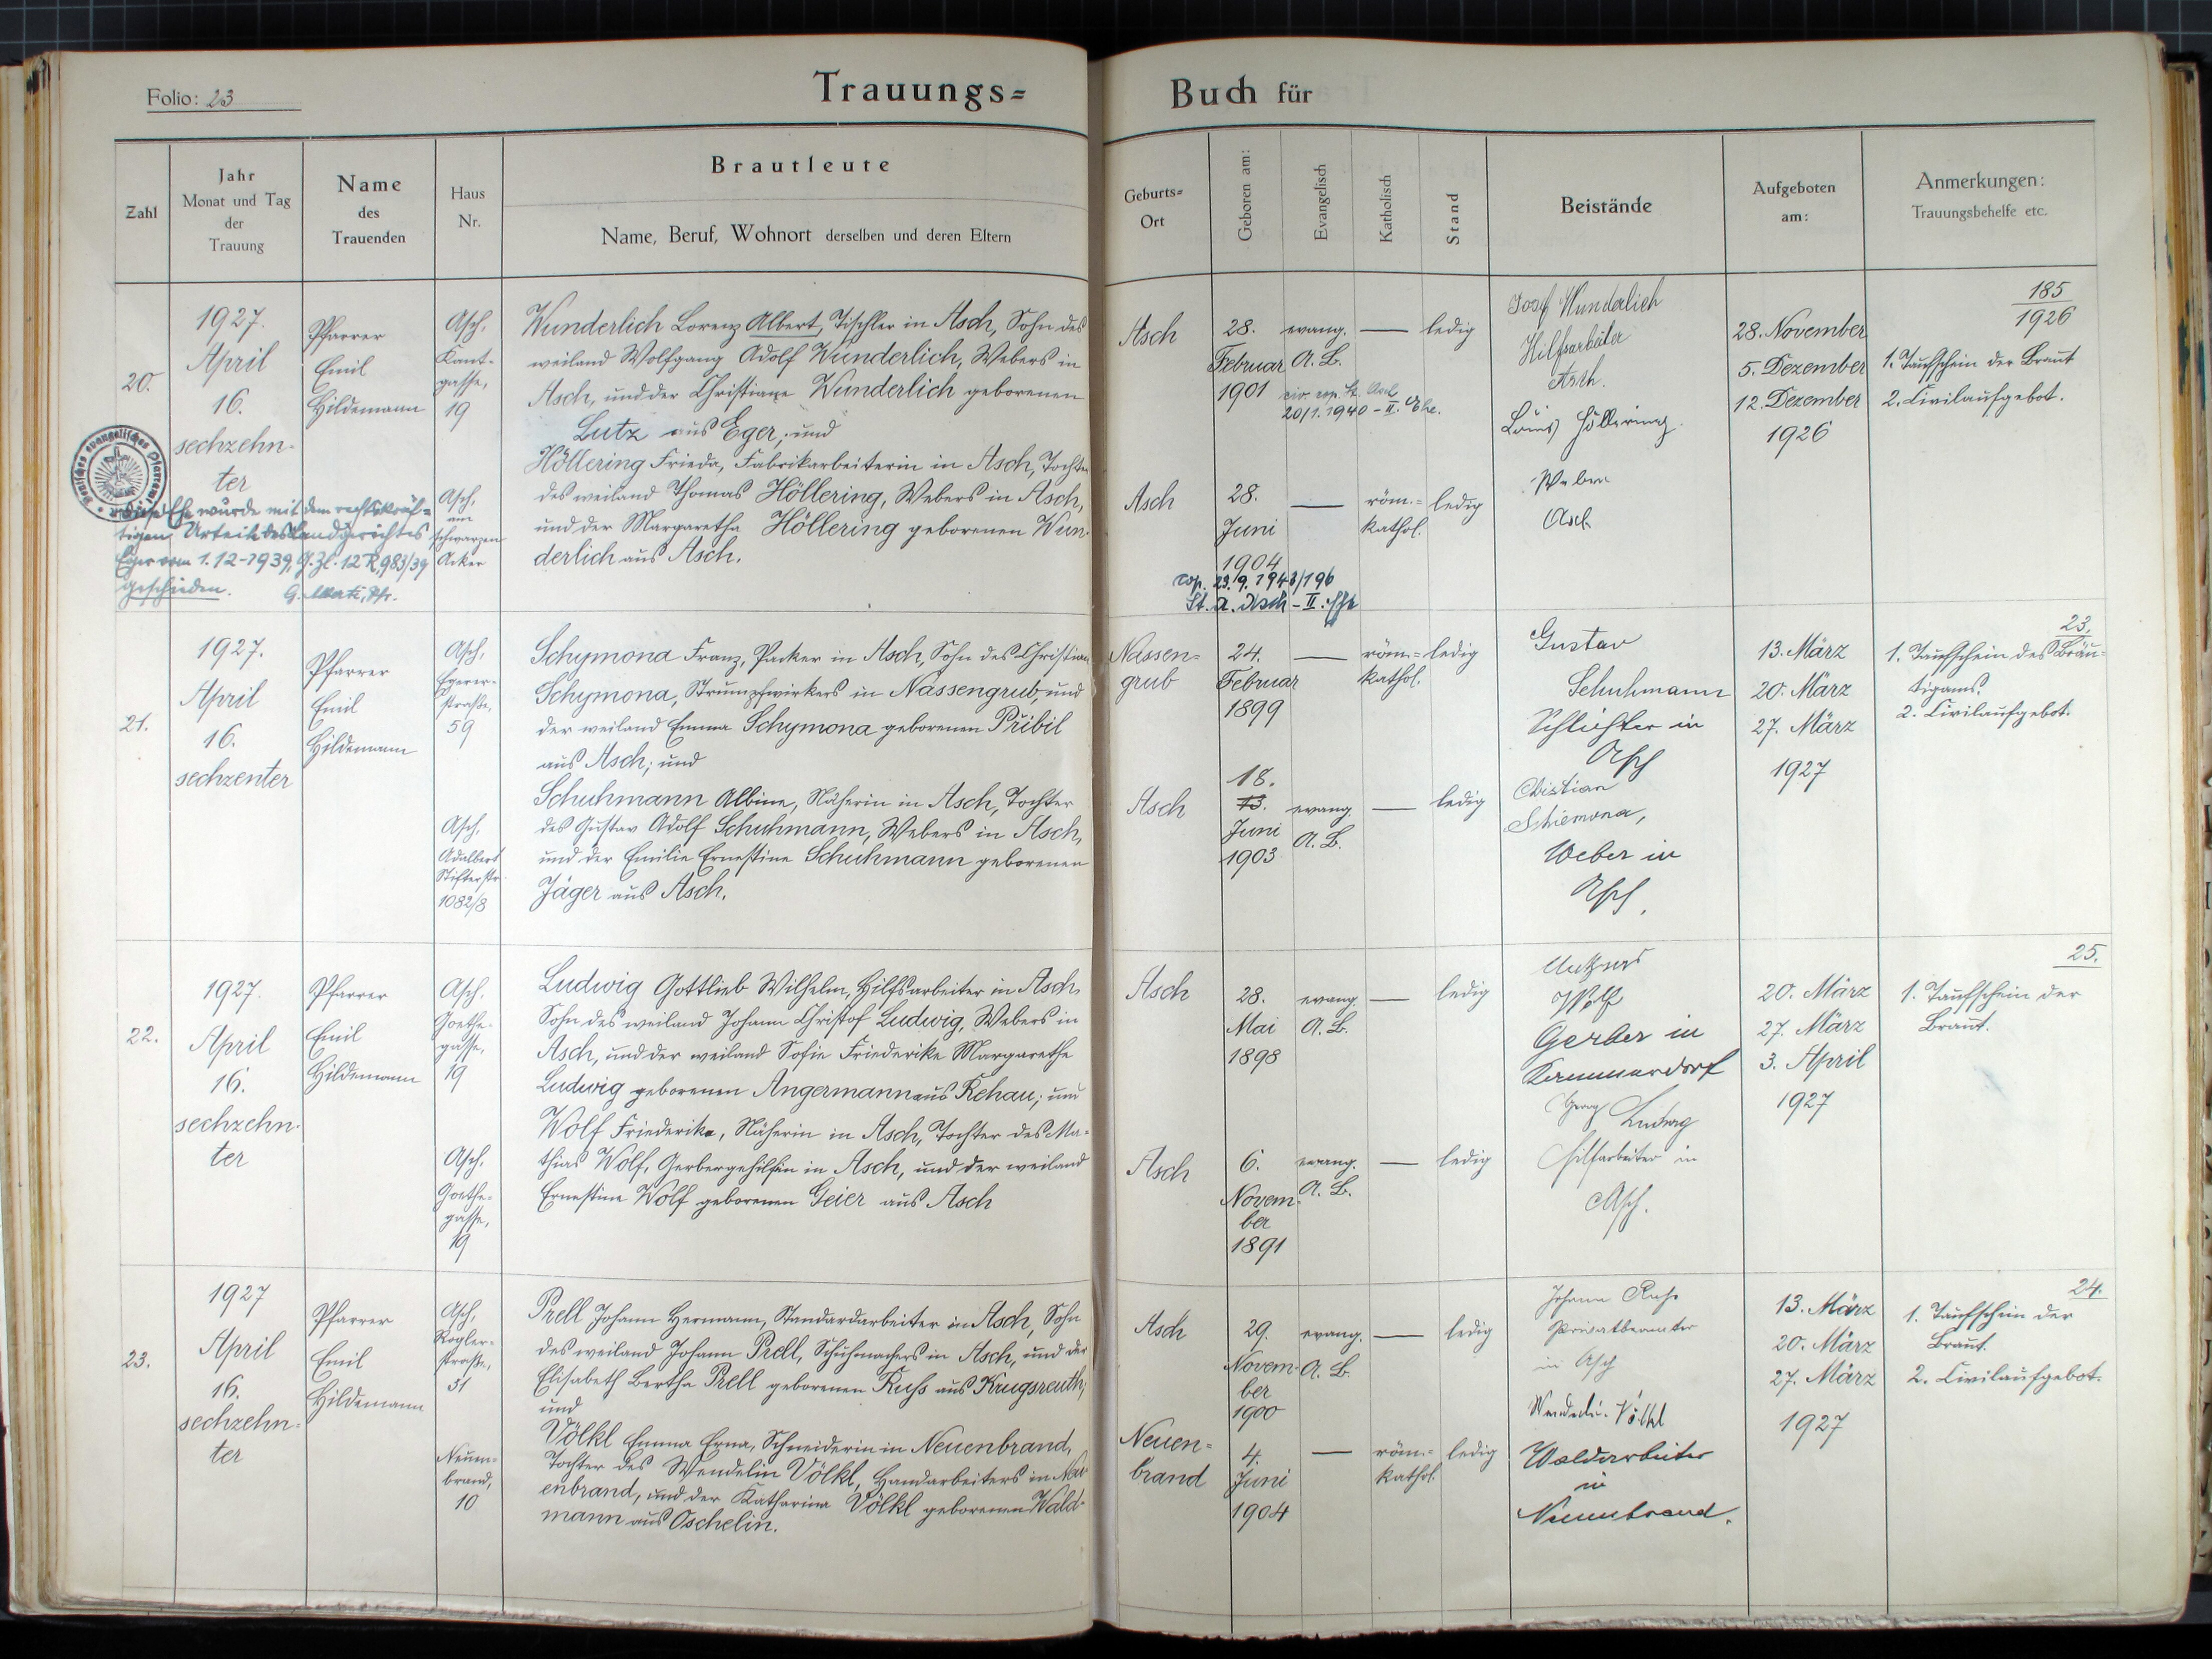 Folio: 23
Trauungs=
Buch für
Zahl
Jahr
Monat und Tag
der
Trauung
Name
des
Trauenden
Haus
Nr.
Brautleute
Name, Beruf, Wohnort derselben und deren Eltern
Geburts=
Ort
Geboren am:
Evangelisch
Katholisch
Stand
Beistände
Aufgeboten
am:
Anmerkungen:
Trauungsbehelfe etc.
20.
1927.
April
16.
sechzehn-
ter
Pfarrer
Emil
Hildemann
Asch,
Kant-
gasse,
19
Wunderlich Lorenz Albert, Tischler in Asch, Sohn des
weiland Wolfgang Adolf Wunderlich, Webers in
Asch, und der Christiane Wunderlich geborenen
Lutz aus Eger, und
Höllering Frieda, Fabrikarbeiterin in Asch, Tochter
des weiland Thomas Höllering, Webers in Asch,
und der Margaretha Höllering geborenen Wun-
derlich aus Asch.
Asch,
am
schwarzen
Acker
Diese Ehe wurde mit dem rechtskräf-
tigen Urteil des Landgerichtes
Eger vom 1.12-1939, G.Zl. 12 R 983/39
geschieden.
Asch
28.
Februar
1901
evang.
A. B.
ledig
20/1. 1940 - II. Ehe.
Asch
28.
Juni
1904
röm.=
kathol.
ledig
cop. 23.9.1943/196
St. A. Asch - II. Ehe
Josef Wunderlich
Hilfsarbeiter
Asch.
Louis Höllering.
Weber
Asch
28. November
5. Dezember
12. Dezember
1926
185
1926
1. Taufschein der Braut
2. Civilaufgebot.
21.
1927.
April
16.
sechzenter
Pfarrer
Emil
Hildemann
Asch,
Egerer-
straße,
59
Schymona Franz, Packer in Asch, Sohn des Christian
Schymona, Strumpfwirkers in Nassengrub, und
der weiland Emma Schymona geborenen Přibil
aus Asch; und
Schuhmann Albine, Näherin in Asch, Tochter
des Gustav Adolf Schuhmann, Webers in Asch,
und der Emilie Ernestine Schuhmann geborenen
Jäger aus Asch.
Asch,
Adalbert
Stifterstr.
1082/8
Nassen=
grub
24.
Februar
1899
röm.=
kathol.
ledig
Asch
18.
13.
Juni
1903
evang.
A. B.
ledig
Gustav
Schuhmann
Schlichter in
Asch
Christian
Schiemona,
Weber in
Asch.
13. März
20. März
27. März
1927
23.
1. Taufschein des Bräu-
tigams.
2. Civilaufgebot.
22.
1927.
April
16.
sechzehn-
ter
Pfarrer
Emil
Hildemann
Asch,
Goethe-
gasse,
19
Ludwig Gottlieb Wilhelm, Hilfsarbeiter in Asch,
Sohn des weiland Johann Christof Ludwig, Webers in
Asch, und der weiland Sofie Friederike Margarethe
Ludwig geborenen Angermann aus Rehau; und
Wolf Friederike, Näherin in Asch, Tochter des Ma-
thias Wolf, Gerbergehilfen in Asch, und der weiland
Ernestine Wolf geborenen Geier aus Asch
Asch,
Goethe-
gasse,
19
Asch
28.
Mai
1898
evang.
A. B.
ledig
Asch
6.
Novem-
ber
1891
evang.
A. B.
ledig
Wolf
Gerber in
Georg Ludwig
Hilfarbeiter in
Asch.
20. März
27. März
3. April
1927
25.
1. Taufschein der
Braut.
23.
1927
April
16.
sechzehn-
ter
Pfarrer
Emil
Hildemann
Asch,
Rogler-
straße,
31
Prell Johann Hermann, Standardarbeiter in Asch, Sohn
des weiland Johann Prell, Schuhmachers in Asch, und der
Elisabeth Bertha Prell geborenen Ruß aus Krugsreuth,
und
Völkl Emma Erna, Schneiderin in Neuenbrand,
Tochter des Wendelin Völkl, Handarbeiters in Neu-
enbrand, und der Katharina Völkl geborenen Wald-
mann aus Oschelin.
Neuen-
brand,
10
Asch
29.
Novem-
ber
1900
evang.
A. B.
ledig
Neuen=
brand
4.
Juni
1904
röm.=
kathol.
ledig
Johann Ruß
Privatbeamter
in Asch
Wendelin Völkl
Waldarbeiter
in
Neuenbrand.
13. März
20. März
27. März
1927
24.
1. Taufschein der
Braut.
2. Civilaufgebot.